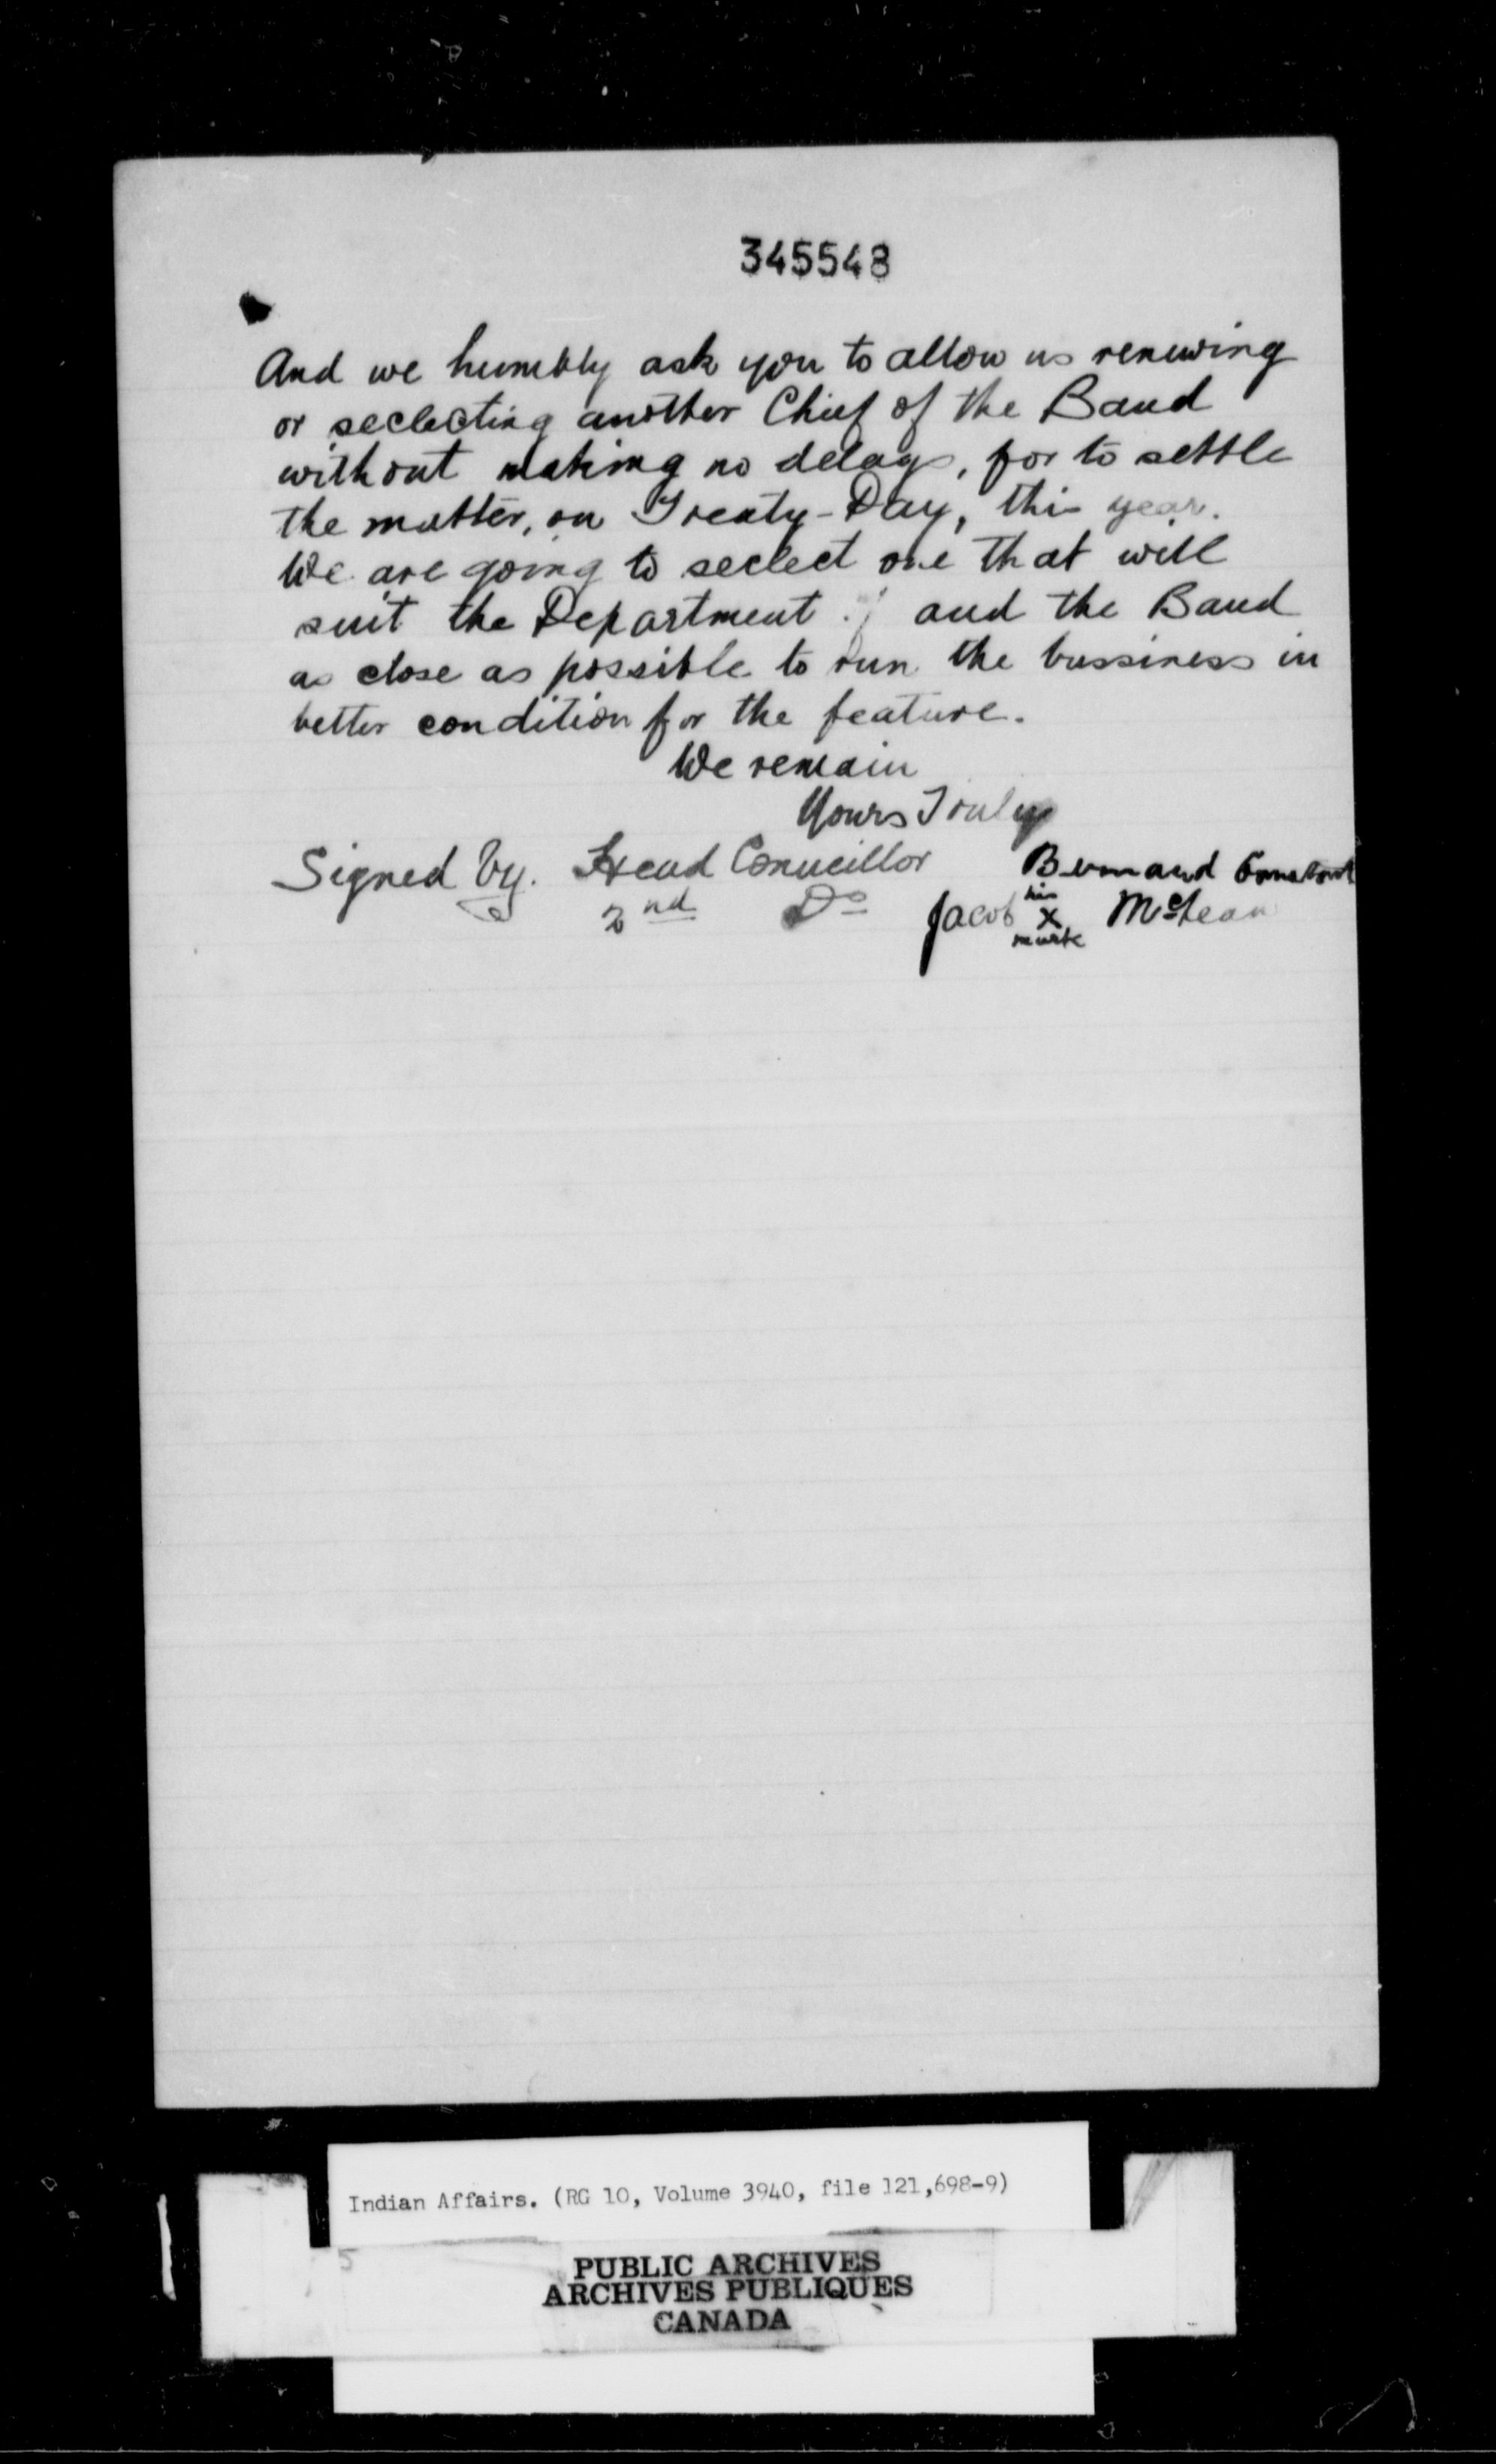 345548
And we humbly ask you to allow us renewing
or seclecting another Chief of the Band
without making no delays, for to settle
the matter, on Treaty-Day, this year.
We are going to seclect one that will
suit the Department and the Band
as close as possible to run the bussiness in
better condition for the feature.
We remain
Yours Truly
Signed by. Head Councillor Bernard
2nd Do Jacob his X mark McLean
Indian Affairs. (RG 10, Volume 3940, file 121,698-9)
PUBLIC ARCHIVES
ARCHIVES PUBLIQUES
CANADA